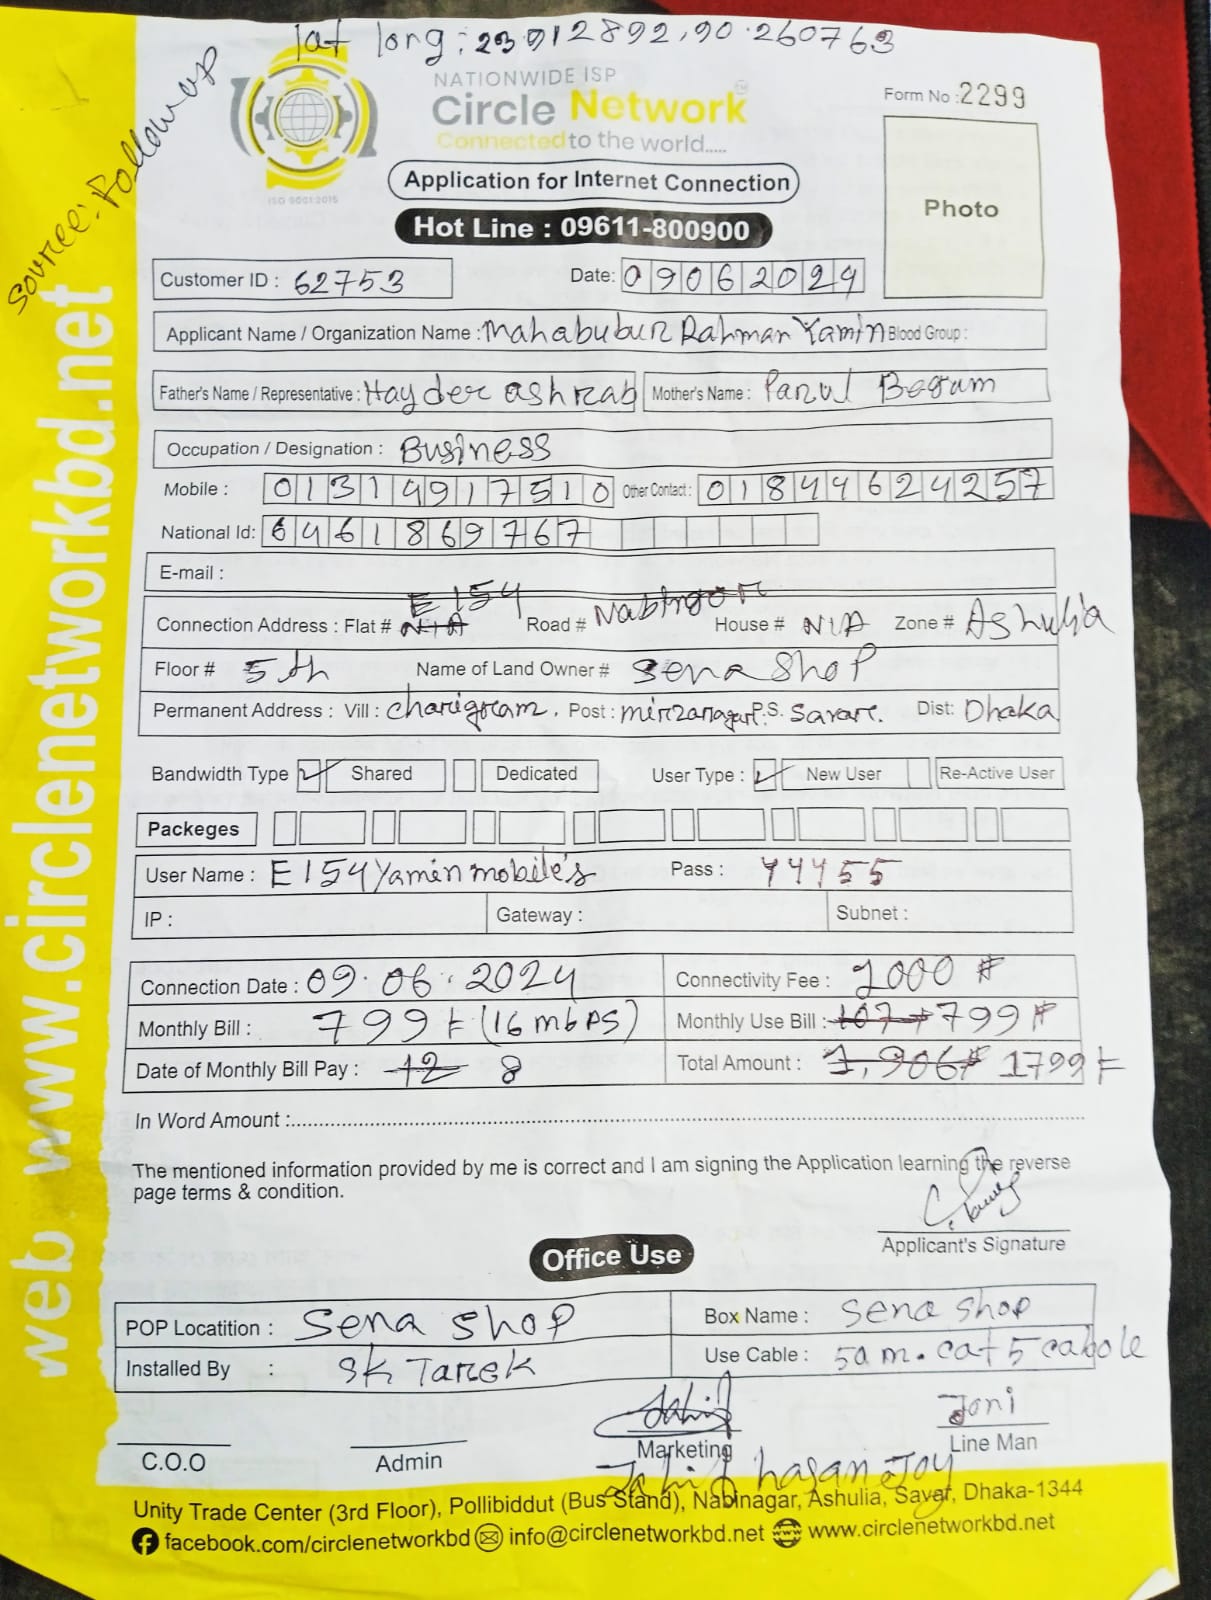 lat long: 23.912892, 90.260763
source:- Follow up
NATIONWIDE ISP
Circle Network
Connected to the world.....
ISO 9001:2015
Form No : 2299
Application for Internet Connection
Photo
Hot Line : 09611-800900
Customer ID : 62753 Date: 09062024
Applicant Name / Organization Name : Mahabubur Rahman Yamin Blood Group :
Father's Name / Representative : Hayder ashrab Mother's Name : Parul Begum
Occupation / Designation : Business
Mobile : 01314917510 Other Contact : 01844624257
National Id: 6461869767
E-mail :
Connection Address : Flat # N/A E154 Road # Nabingor House # N/A Zone # Ashulia
Floor # 5th Name of Land Owner # Sena Shop
Permanent Address : Vill : Charigram. Post : mirzanagar P.S. Savar. Dist: Dhaka
Bandwidth Type ✓ Shared Dedicated User Type : ✓ New User Re-Active User
Packeges
User Name : E154Yaminmobile's Pass : 44455
IP : Gateway : Subnet :
Connection Date : 09.06.2024 Connectivity Fee : 1000
Monthly Bill : 799 (16 mbps) Monthly Use Bill : 107 799
Date of Monthly Bill Pay : 12 8 Total Amount : 1,906 1799
In Word Amount :
The mentioned information provided by me is correct and I am signing the Application learning the reverse
page terms & condition.
Applicant's Signature
Office Use
POP Locatition : Sena Shop Box Name : Sena Shop
Installed By : SK Tarek Use Cable : 50 m. cat 5 cabole
C.O.O Admin Marketing Joni Line Man
Jahid hasan Joy
Unity Trade Center (3rd Floor), Pollibiddut (Bus Stand), Nabinagar, Ashulia, Savar, Dhaka-1344
facebook.com/circlenetworkbd info@circlenetworkbd.net www.circlenetworkbd.net
web www.circlenetworkbd.net